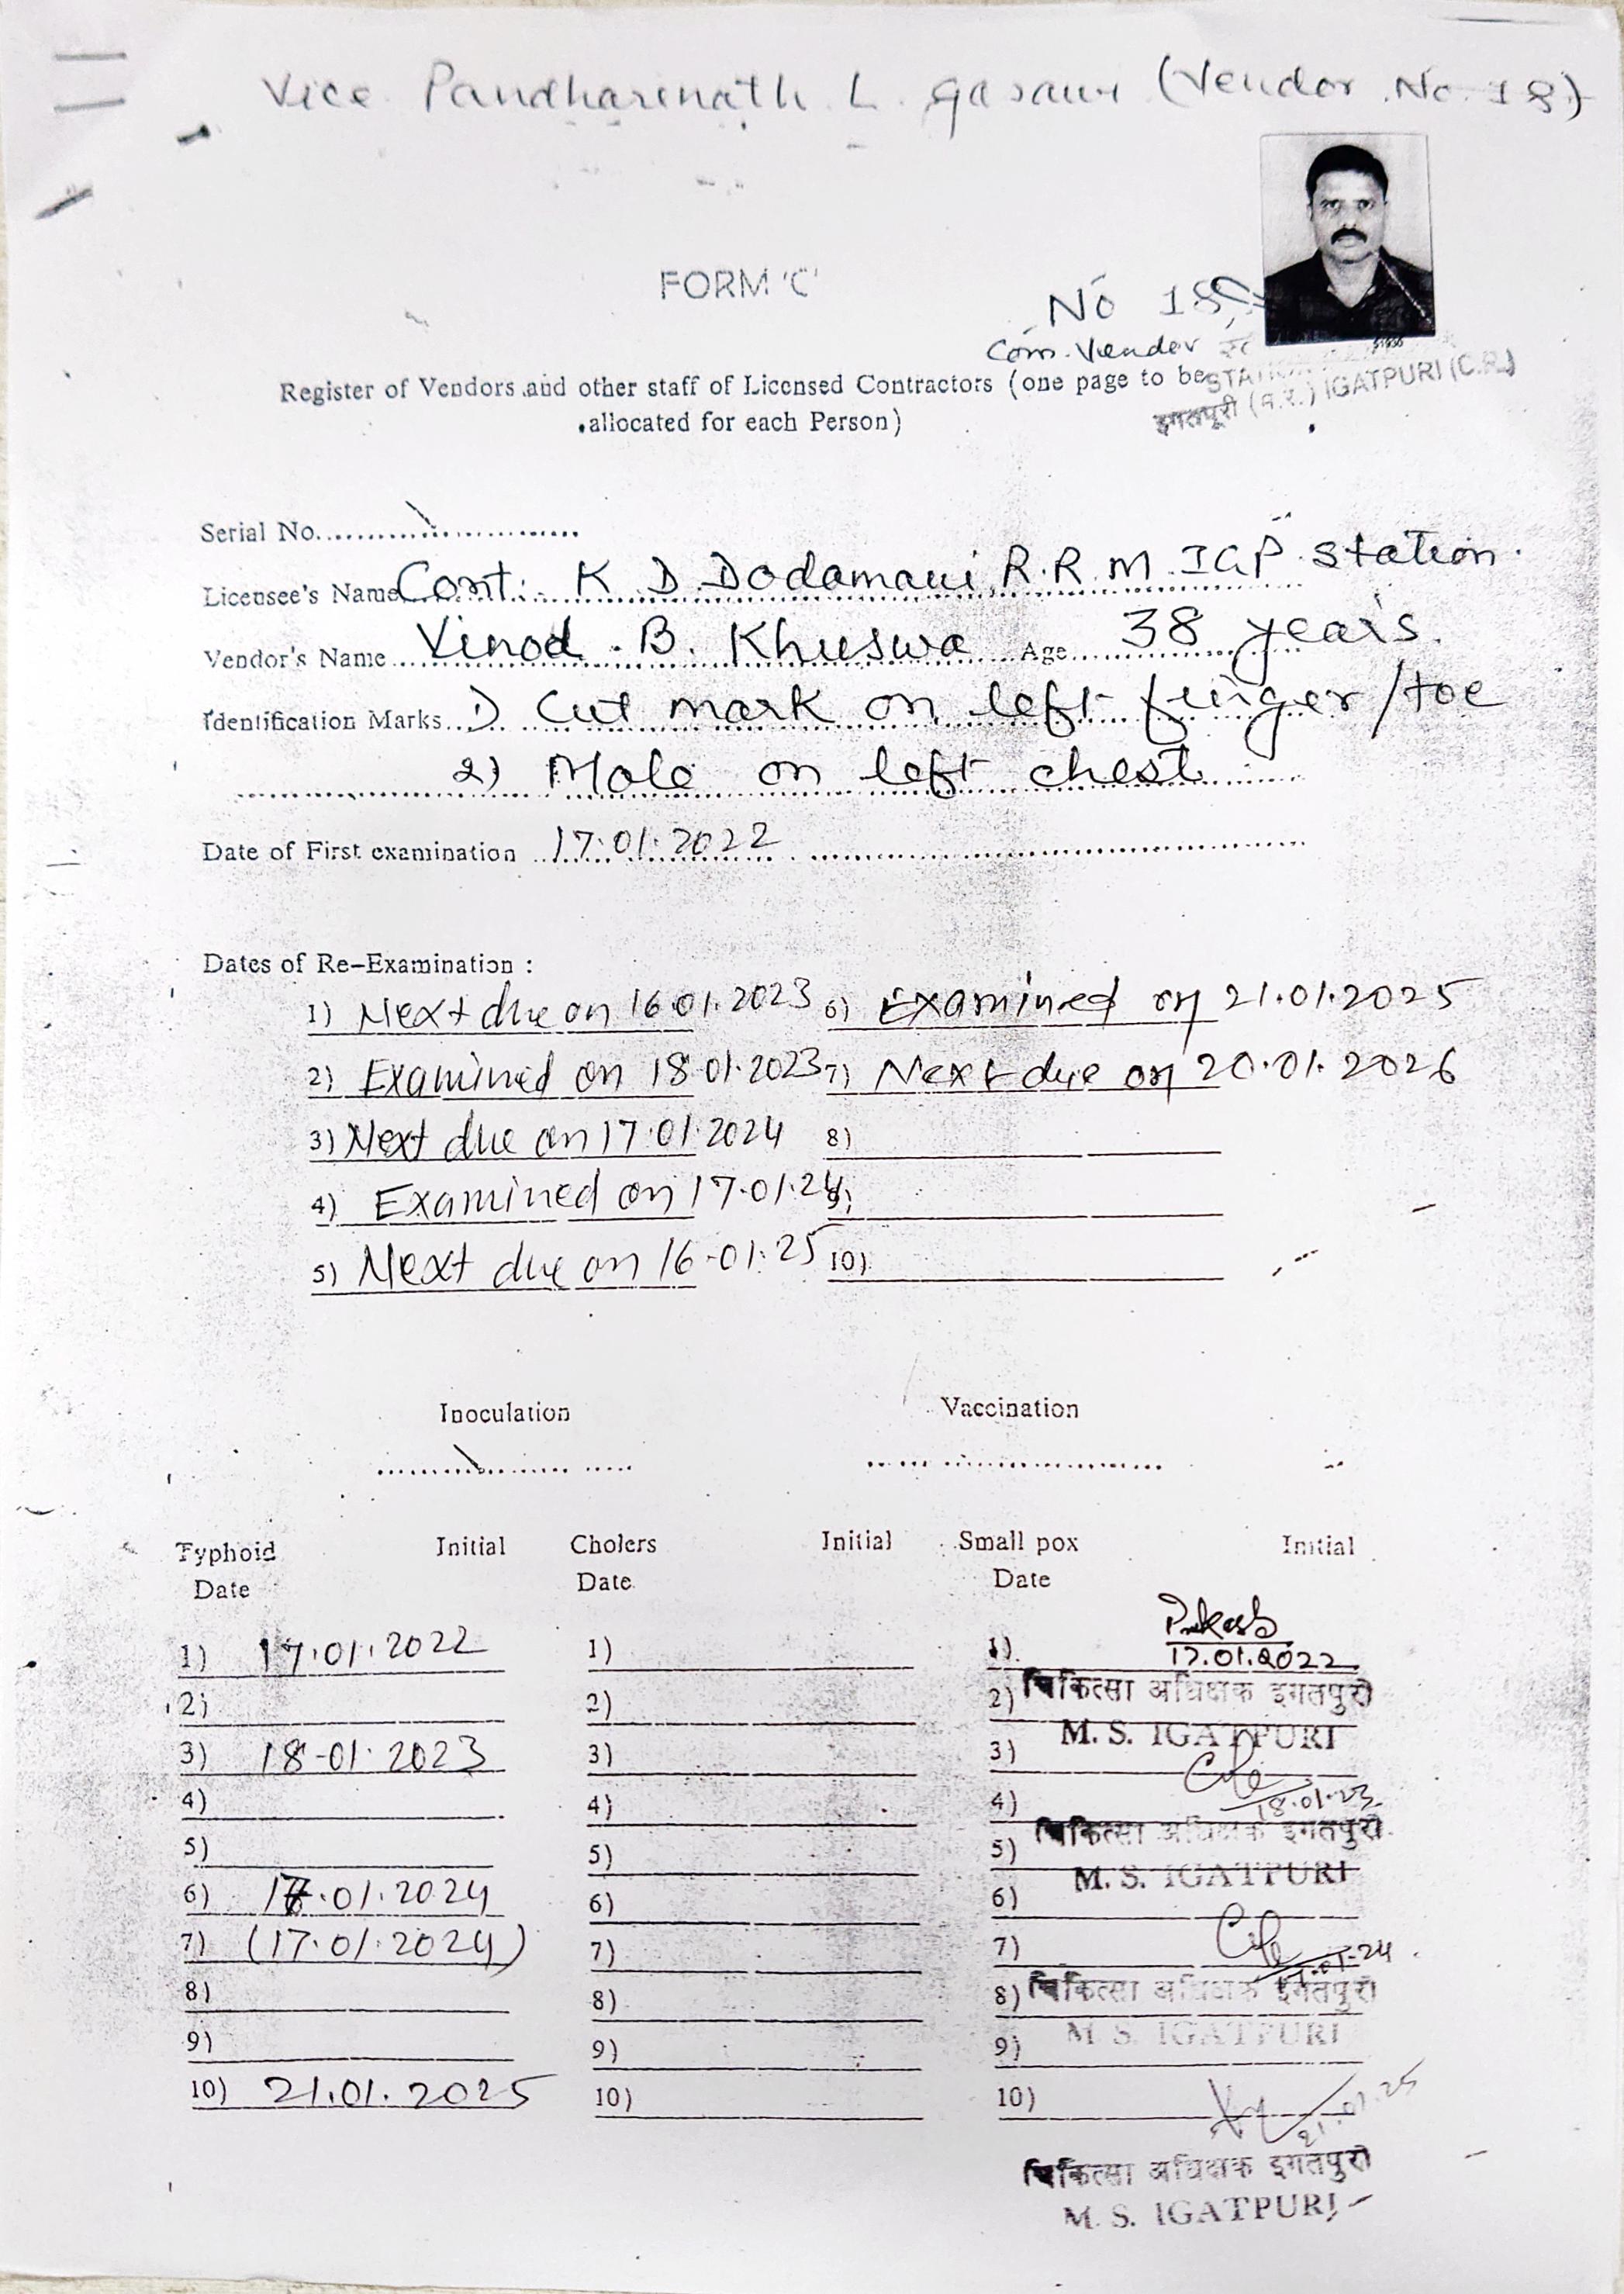 Vice Pandharinath L. Gasawi (Vendor No. 18)
FORM 'C'
No 18
Com. Vender
STATION IGATPURI (C.R.)
इगतपूरी (म.रे.)
Register of Vendors and other staff of Licensed Contractors (one page to be
allocated for each Person)
Serial No..............................
Licensee's Name Cont: K D Dodamani R.R.M. IGP station.
Vendor's Name Vinod . B. Khuswa Age 38 years.
Identification Marks 1) Cut mark on left finger/toe
2) Mole on left chest
Date of First examination 17.01.2022
Dates of Re-Examination :
1) Next due on 16.01.2023 6) Examined on 21.01.2025
2) Examined on 18.01.2023 7) Next due on 20.01.2026
3) Next due on 17.01.2024 8)
4) Examined on 17.01.24 9)
5) Next due on 16.01.25 10)
Inoculation Vaccination
Typhoid Initial Cholers Initial Small pox Initial
Date Date Date
1) 17.01.2022 1) 1) 17.01.2022
2) 2) 2) चिकित्सा अधिक्षक इगतपुरी
M. S. IGATPURI
3) 18-01.2023 3) 3)
4) 4) 4) 18.01.23
चिकित्सा अधिक्षक इगतपुरी
5) 5) 5)
M. S. IGATPURI
6) 17.01.2024 6) 6)
7) (17.01.2024) 7) 7) 17.01-24
8) 8) 8) चिकित्सा अधिक्षक इगतपुरी
M S. IGATPURI
9) 9) 9)
10) 21.01.2025 10) 10) 21.01.25
चिकित्सा अधिक्षक इगतपुरी
M. S. IGATPURI